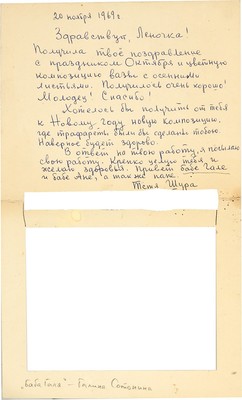 20 ноября 1969 г
Здравствуй, Леночка!
Получила твоё поздравление
с праздником Октября и цветную
композицию вазы с осенними
листьями. Получилось очень хорошо!
Молодец! Спасибо!
Хотелось бы получить от тебя
к Новому году новую композицию,
где трафареты были бы сделаны тобою.
Наверное будет здорово.
В ответ на твою работу, я посылаю
свою работу. Крепко целую тебя, и
желаю здоровья. Привет бабе Гале
и бабе Ане, а также папе.
Тётя Шура
"Баба Галя" – Галина